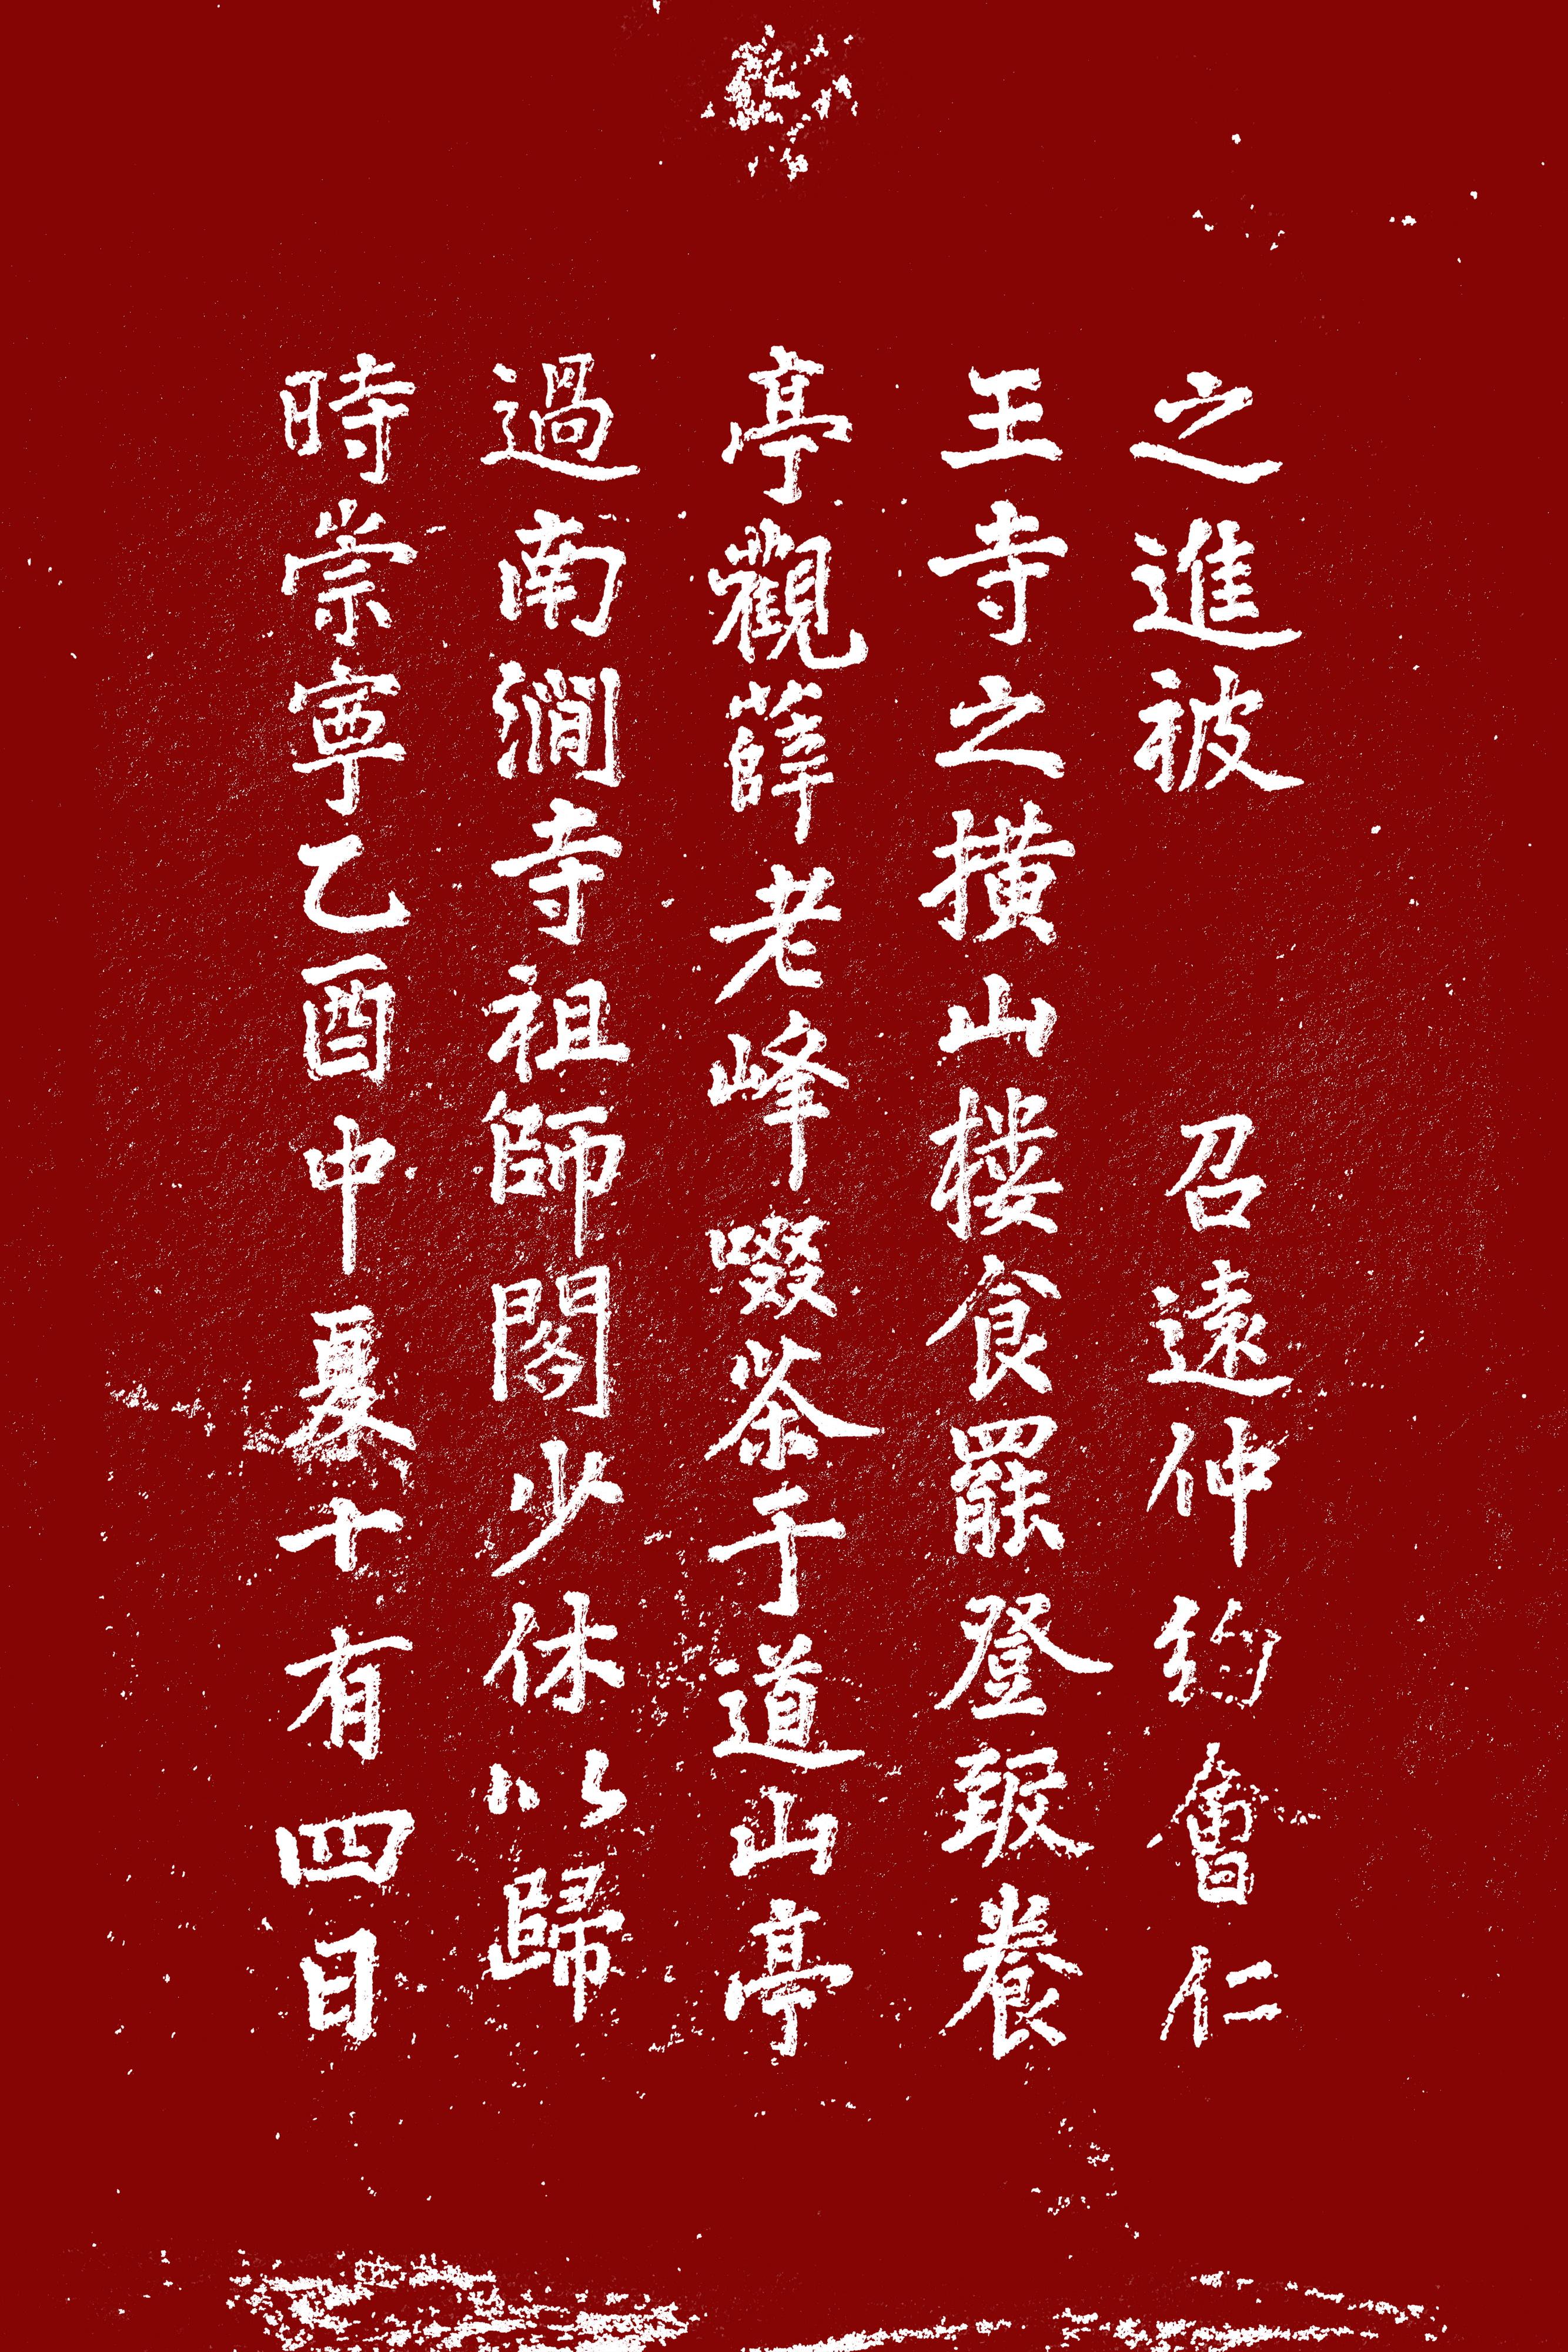 之進被 召遠仲約會仁
王寺之横山樓食罷登躡養
亭觀薛老峰啜茶于道山亭
過南澗寺祖師閣少休以歸
時崇寧乙酉中夏十有四日